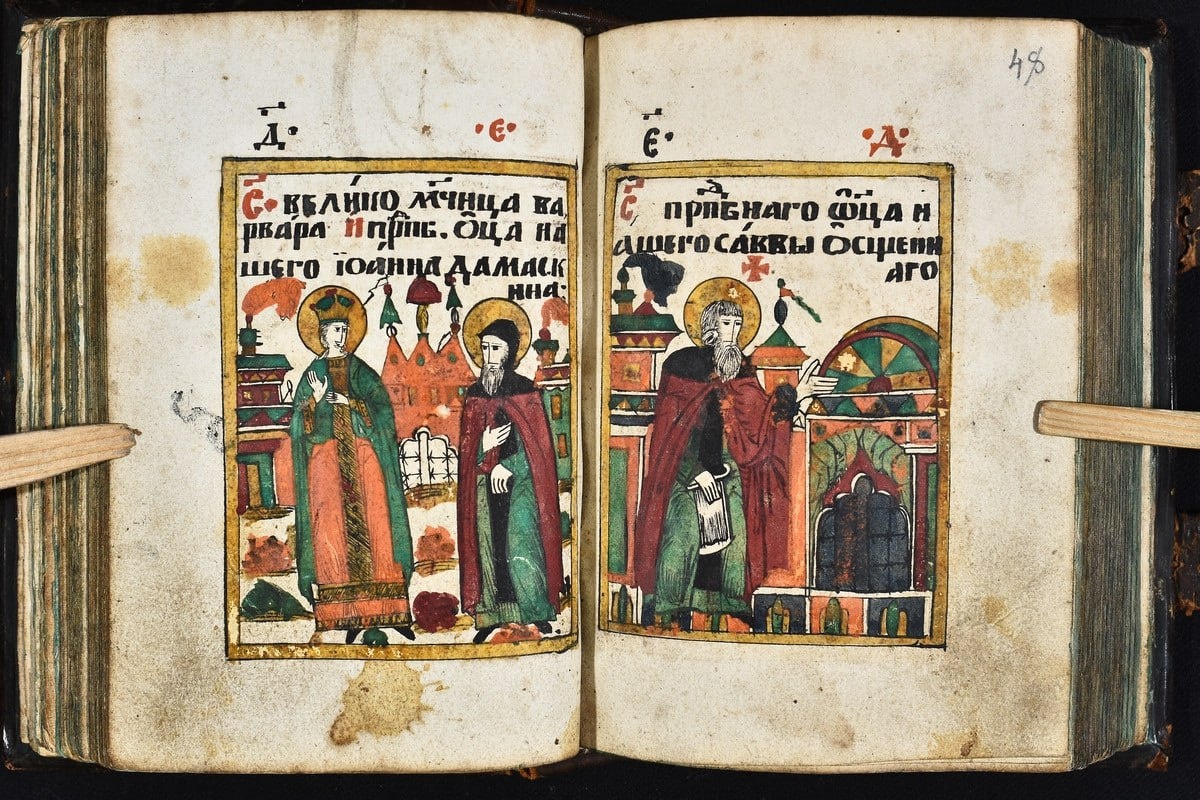 Д҃·
·Є·
С҃· вели́ко мч҃ница ва
рвара и прпⷣб. ѻ҃ца на
шего іѡа́нна дамаск
ина:
Є҃·
·Д·
48
С҃ прпⷣбнаго ѿ҃ца н
ашего са́ввы ѻсщенн
аго